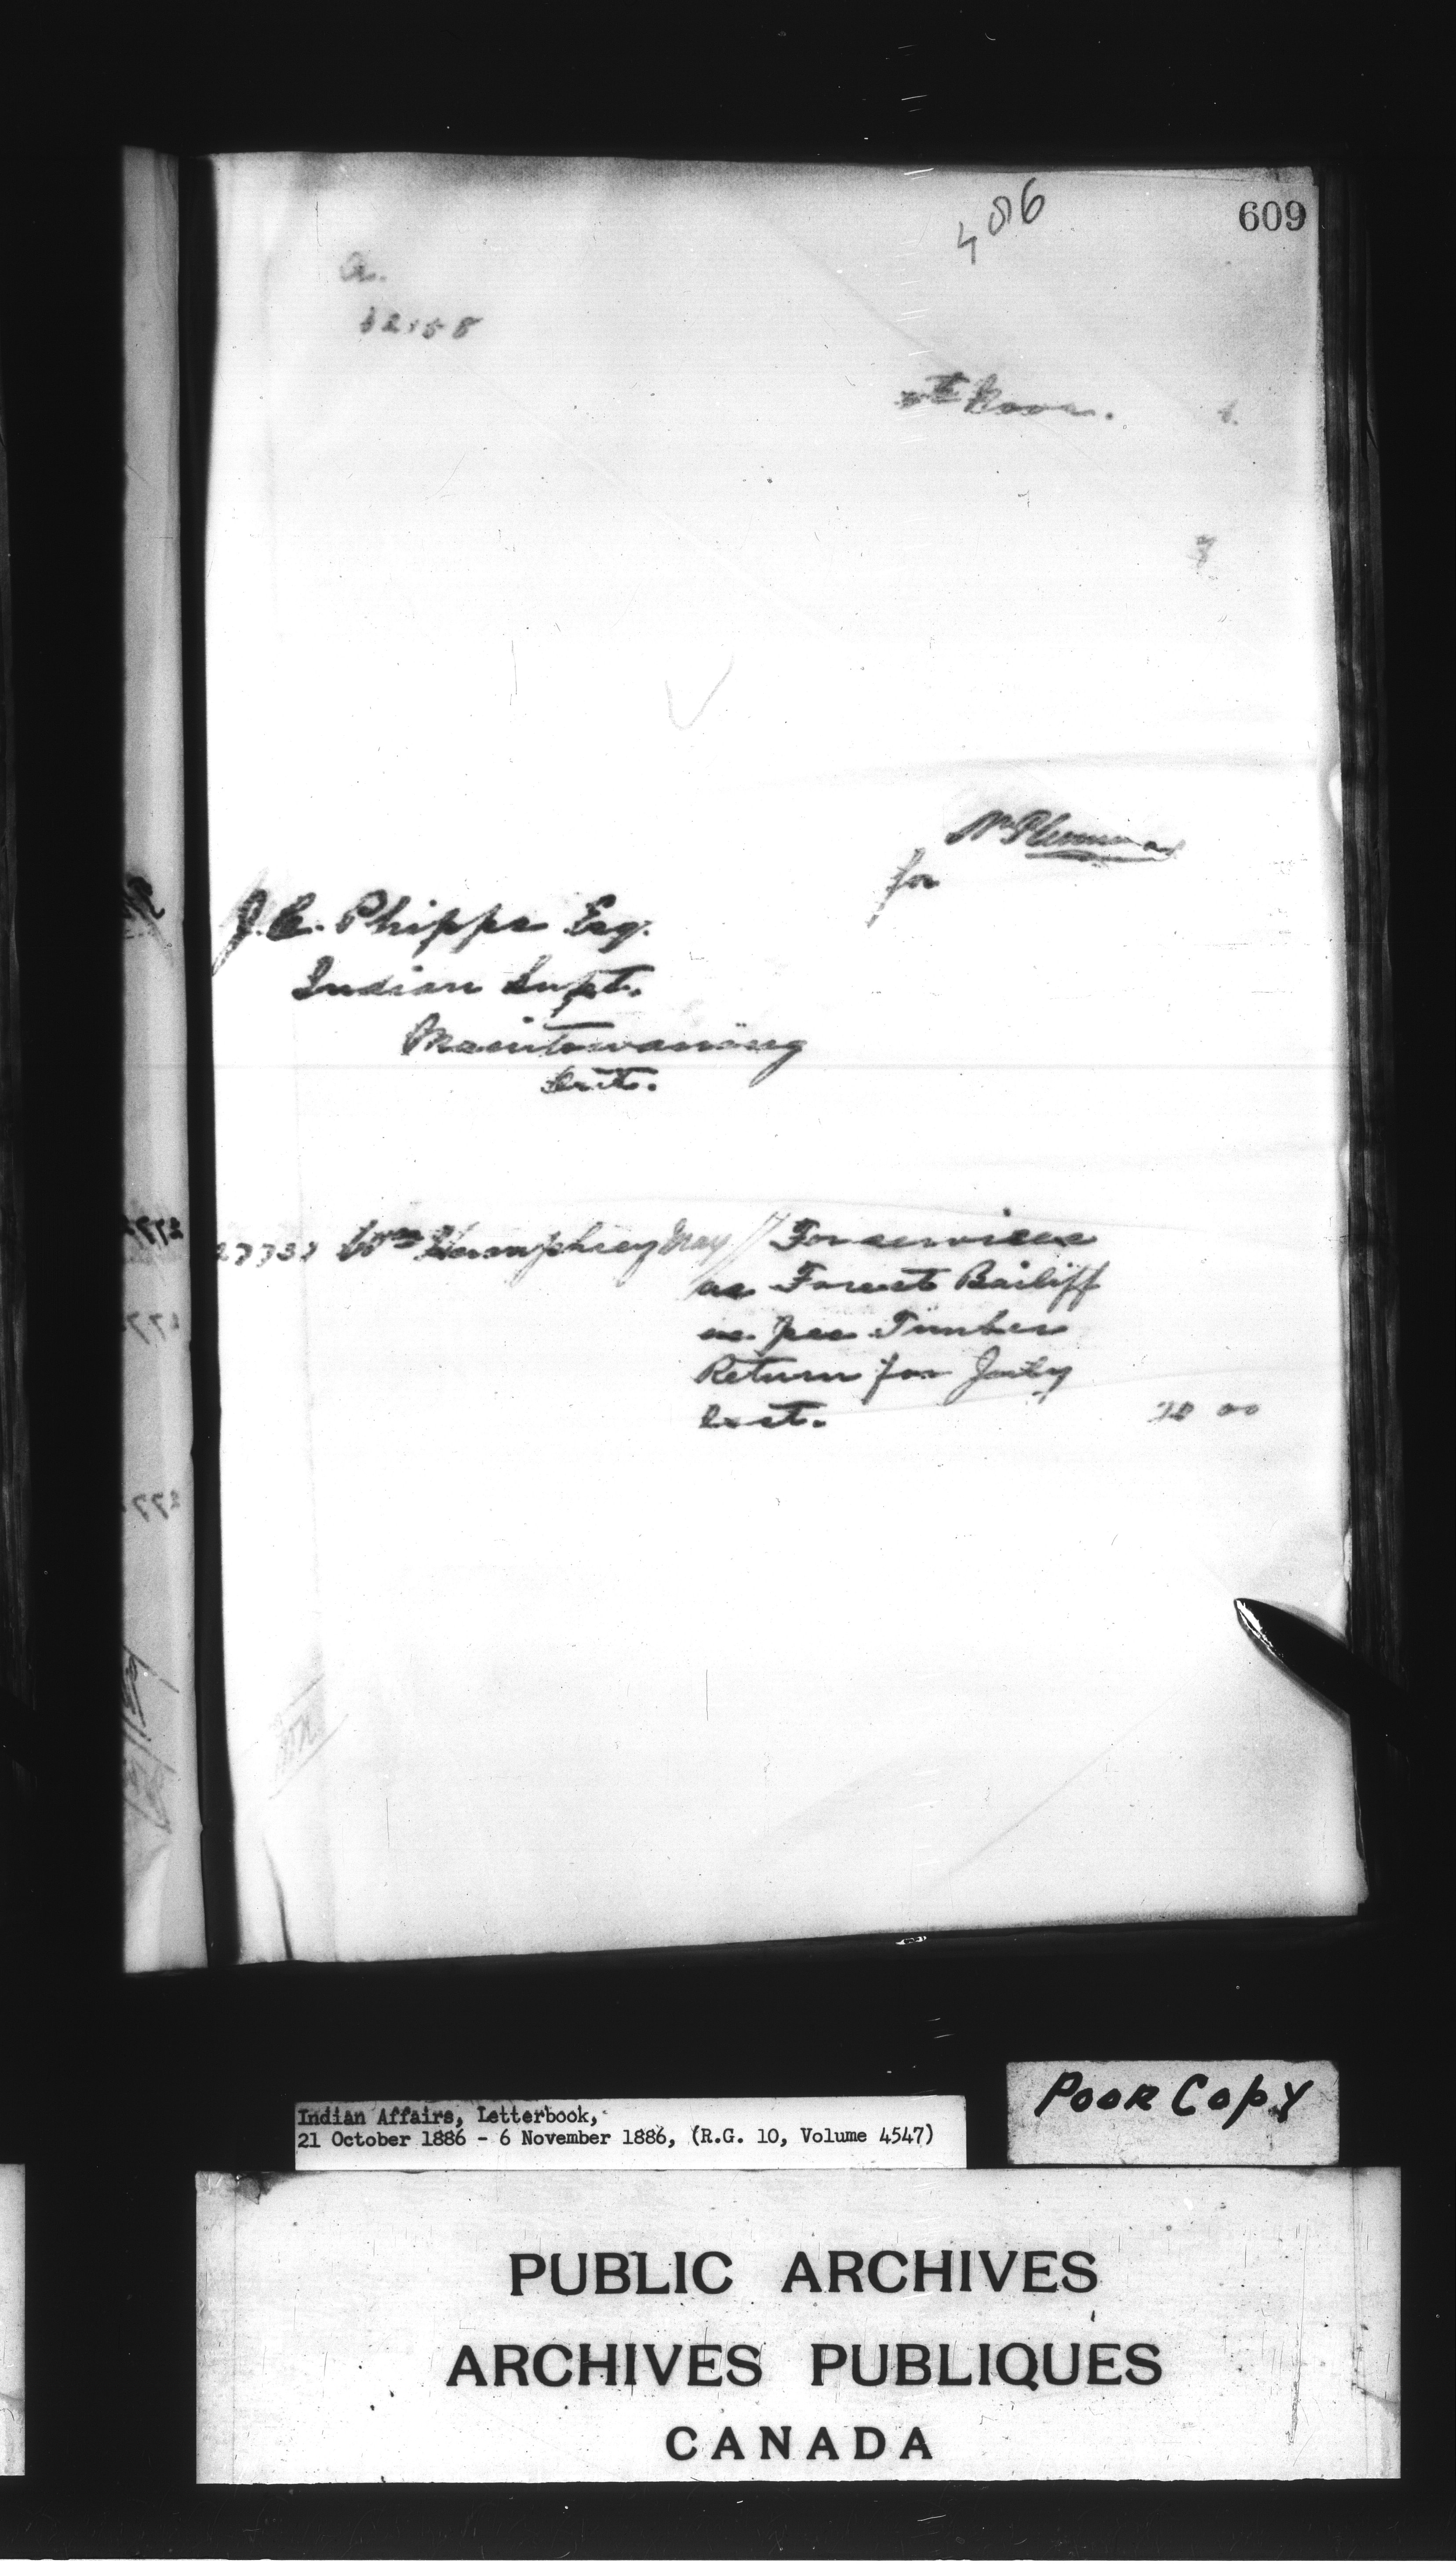 609
486
a.
Nov.
for
J.C. Phipps Esq.
Indian Supt.
Manitowaning
Ont.
Wm Humphrey May // For services
as Forest Bailiff
as per Timber
Return for July
last. 20 00
Indian Affairs, Letterbook,
21 October 1886 - 6 November 1886, (R.G. 10, Volume 4547)
POOR COPY
PUBLIC ARCHIVES
ARCHIVES PUBLIQUES
CANADA